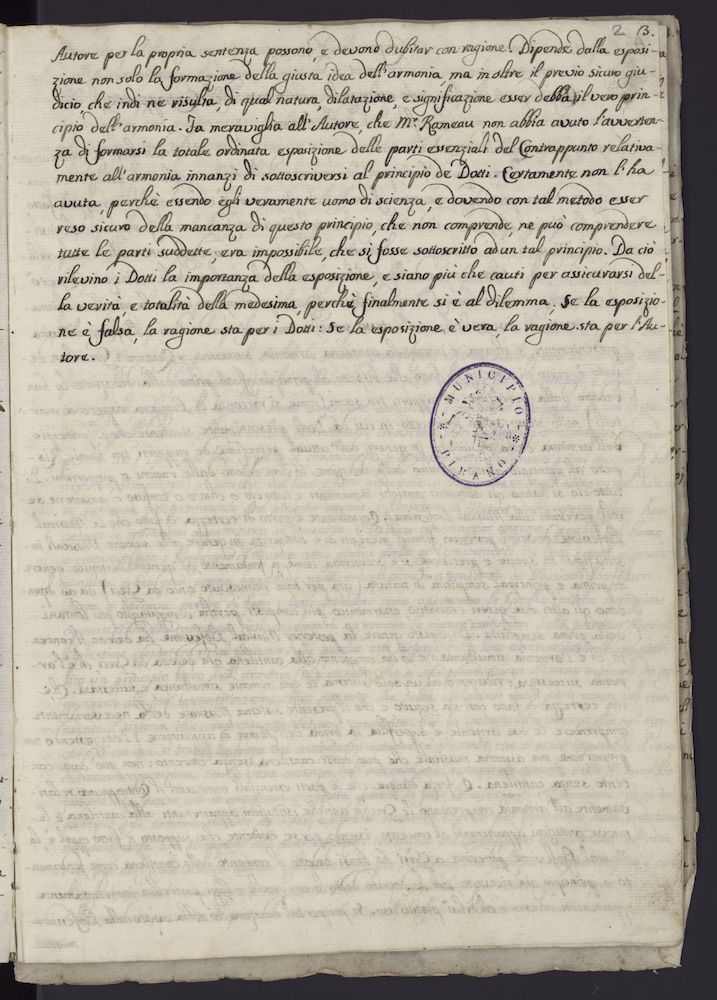 2 13.
Autore per la propria sentenza possono, e devono dubitar con ragione. Dipende dalla esposi-
zione non solo la formazione della giusta idea dell'armonia, ma in oltre il previo sicuro giu-
dicio, che indi ne risulta, di qual natura, dilatazione, e significazione esser debba il vero prin-
cipio dell'armonia. Fa meraviglia all'Autore, che Mr. Rameau non abbia avuto l'avverten-
za di formarsi la totale ordinata esposizione delle parti essenziali del Contrappunto relativa-
mente all'armonia innanzi di sottoscriversi al principio de Dotti. Certamente non l'ha
avuta, perchè essendo egli veramente uomo di scienza, e dovendo con tal metodo esser
reso sicuro della mancanza di questo principio, che non comprende, ne può comprendere
tutte le parti suddette, era impossibile, che si fosse sottoscritto ad un tal principio. Da ciò
rilevino i Dotti la importanza della esposizione, e siano più che cauti per assicurarsi del-
la verità, e totalità della medesima, perchè finalmente si è al dilemma. Se la esposizio-
ne è falsa, la ragione sta per i Dotti: Se la esposizione è vera, la ragione sta per l'Au-
tore.
MUNICIPIO
PIRANO